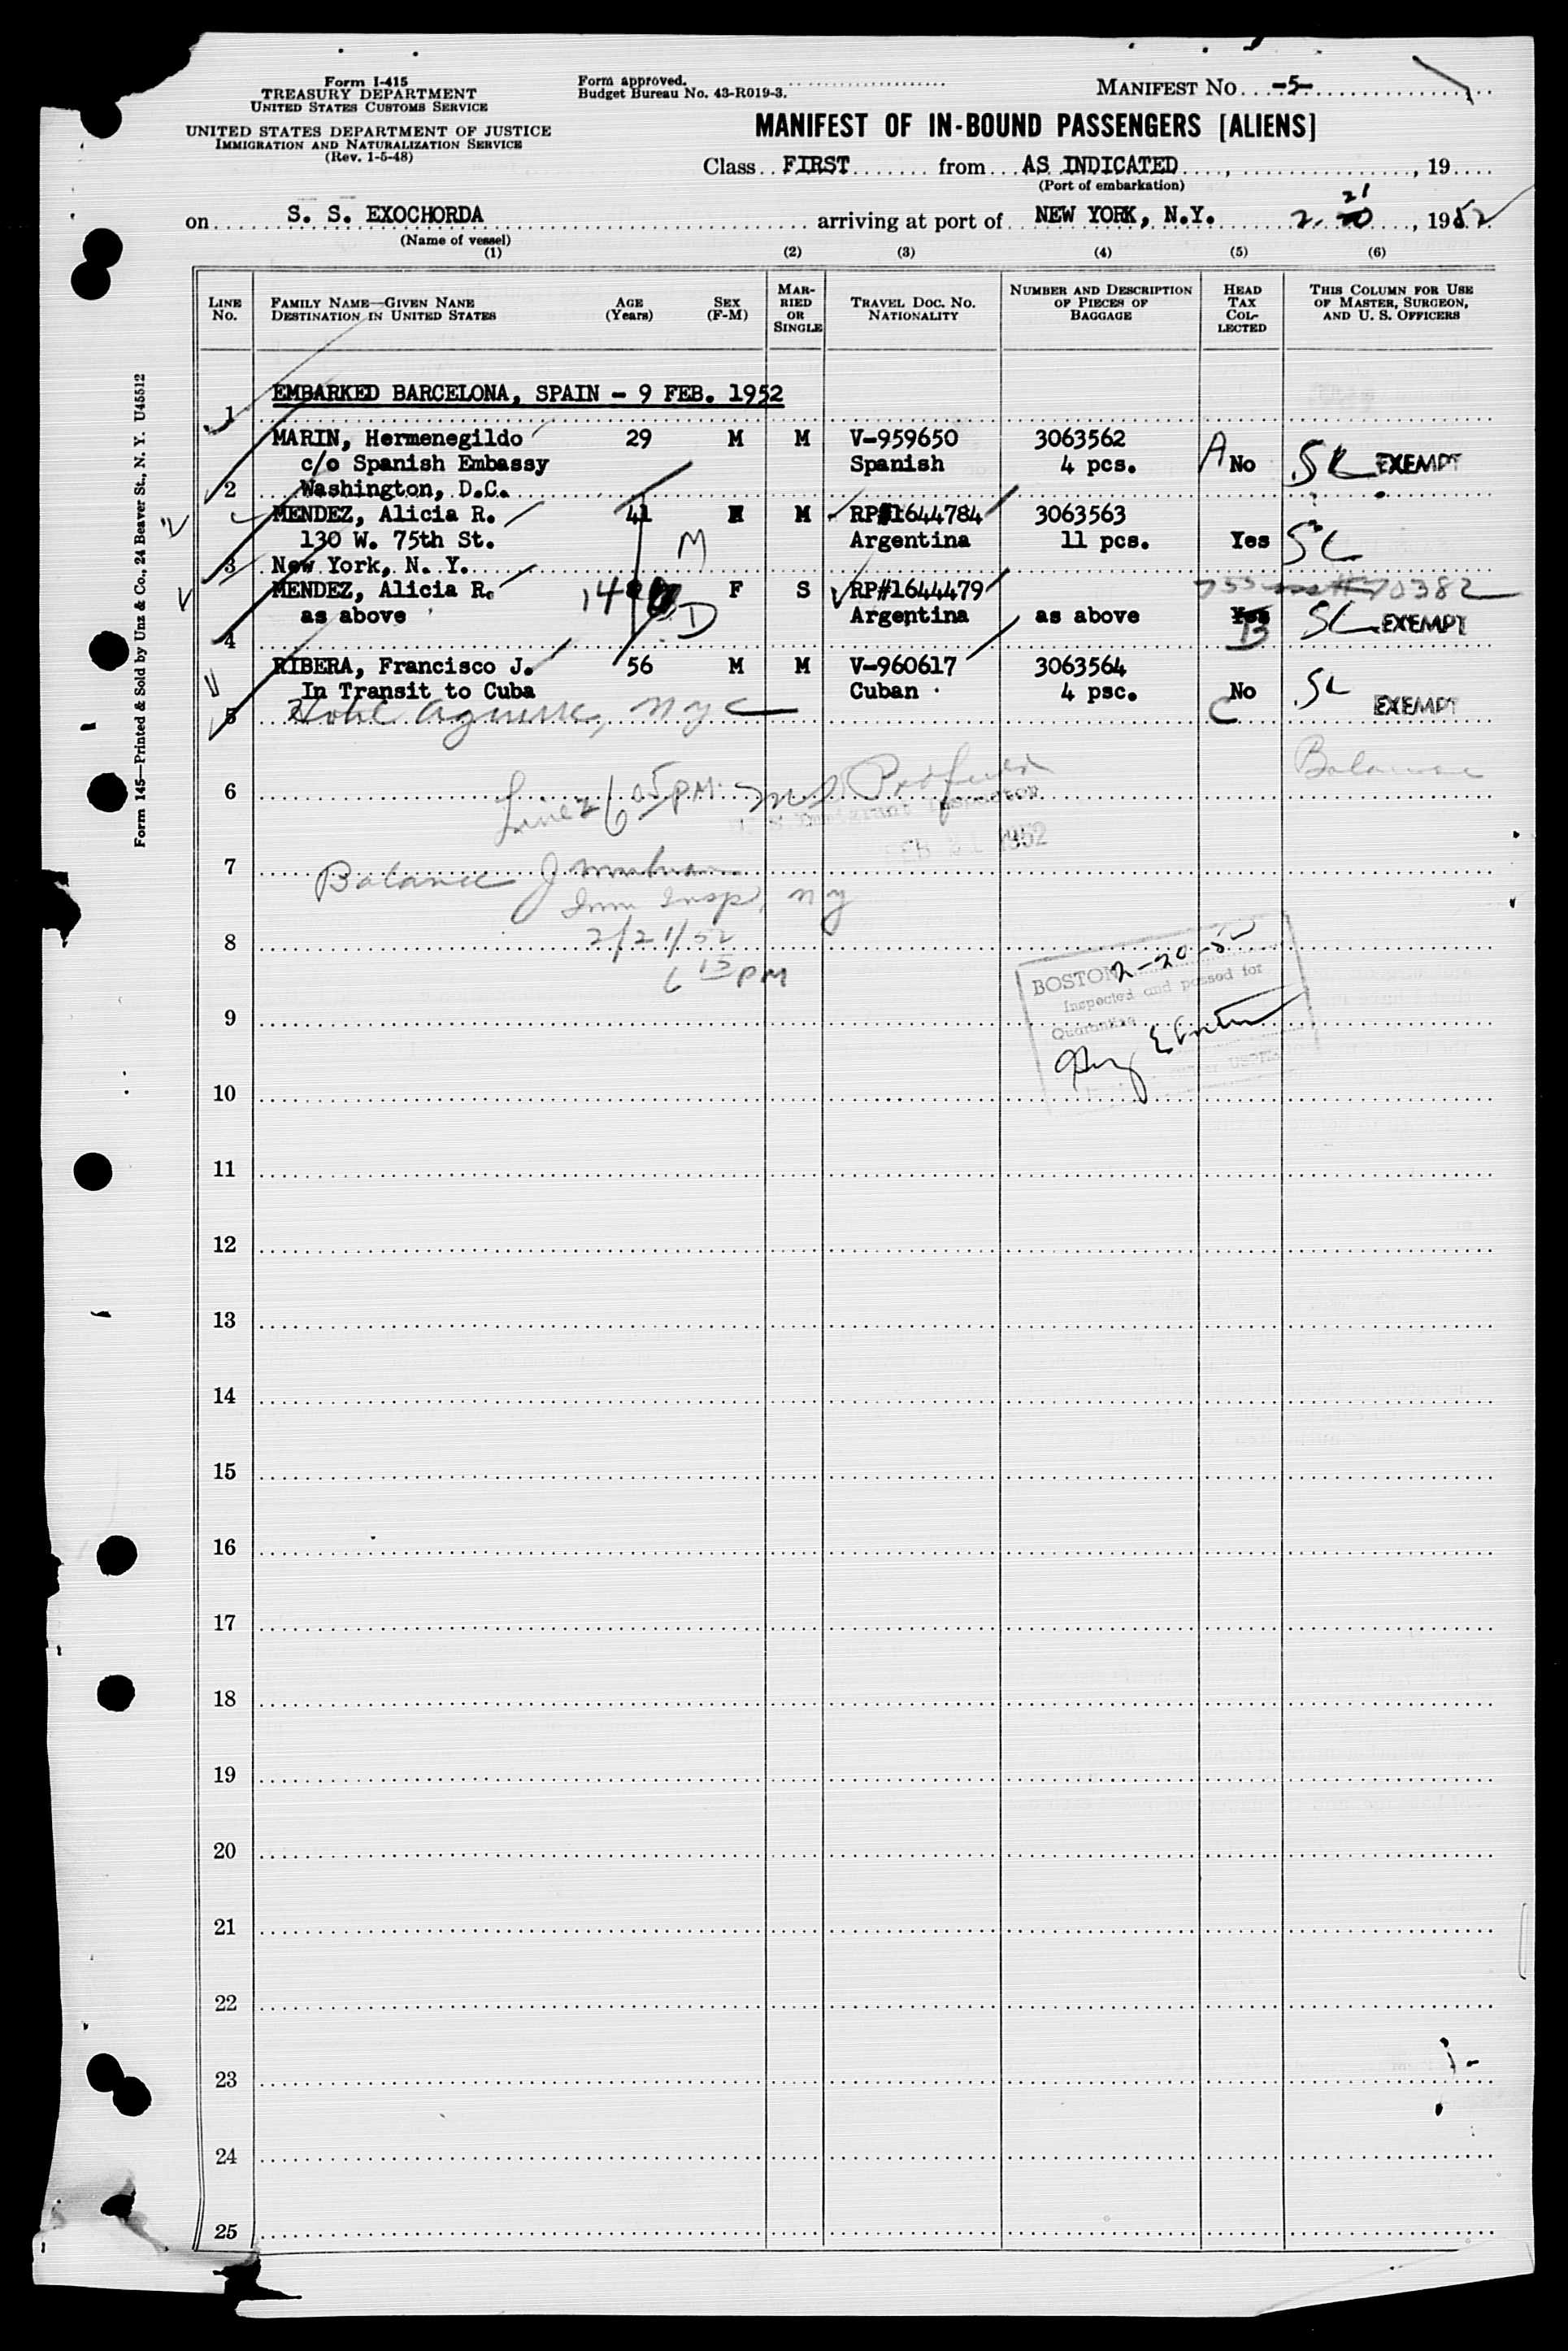 Form I-415
TREASURY DEPARTMENT
UNITED STATES CUSTOMS SERVICE
UNITED STATES DEPARTMENT OF JUSTICE
IMMIGRATION AND NATURALIZATION SERVICE
(Rev. 1-5-48)
Form approved.
Budget Bureau No. 43-R019-3.
MANIFEST NO. -5-
MANIFEST OF IN-BOUND PASSENGERS [ALIENS]
Class FIRST from AS INDICATED, 19
(Port of embarkation)
21
on S. S. EXOCHORDA arriving at port of NEW YORK, N.Y. 2, 20, 1952
(Name of vessel)
(1) (2) (3) (4) (5) (6)
LINE NO.
FAMILY NAME—GIVEN NANE
DESTINATION IN UNITED STATES
AGE (Years)
SEX (F-M)
MARRIED OR SINGLE
TRAVEL DOC. NO.
NATIONALITY
NUMBER AND DESCRIPTION OF PIECES OF BAGGAGE
HEAD TAX COLLECTED
THIS COLUMN FOR USE OF MASTER, SURGEON, AND U. S. OFFICERS
EMBARKED BARCELONA, SPAIN - 9 FEB. 1952
1
MARIN, Hermenegildo 29 M M V-959650 3063562
c/o Spanish Embassy Spanish 4 pcs. A No SL EXEMPT
2 Washington, D.C.
MENDEZ, Alicia R. 41 M RP#1644784 3063563
130 W. 75th St. M Argentina 11 pcs. Yes SL
3 New York, N. Y.
MENDEZ, Alicia R. 14 F S RP#1644479 70382
as above D Argentina as above Yes SL EXEMPT
4 B
RIBERA, Francisco J. 56 M M V-960617 3063564
In Transit to Cuba Cuban 4 psc. No SL EXEMPT
5 Hotel NYC C
Balance
6 Line 2 6 05 PM
U. S. Immigrant Inspector
FEB 21 1952
7 Balance J
Imm Insp, NY
8 2/21/52
6 15 PM
BOSTON 2-20-52
Inspected and passed for
Quarantine
9
10
11
12
13
14
15
16
17
18
19
20
21
22
23
24
25
Form 145—Printed & Sold by Unz & Co., 24 Beaver St., N. Y. U45512